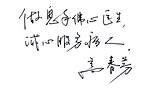 做患者贴心医生,
诚心服务病人。
高春芳